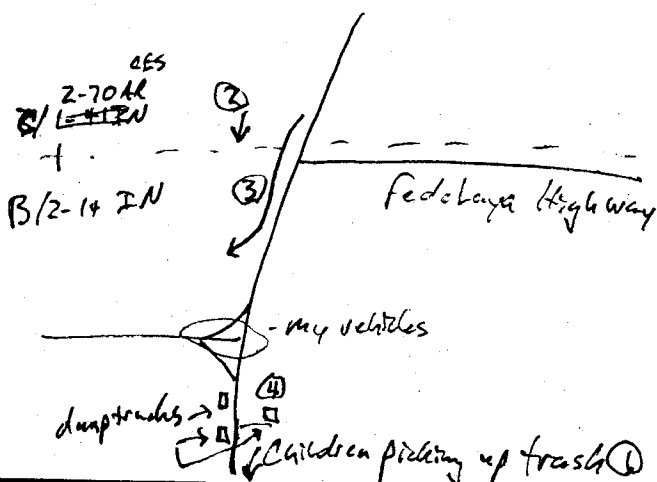 2-70 AR
B/2-14 IN
②
③
Fedolaya Highway
- my vehicles
④
dumptrucks
Children picking up trash ①